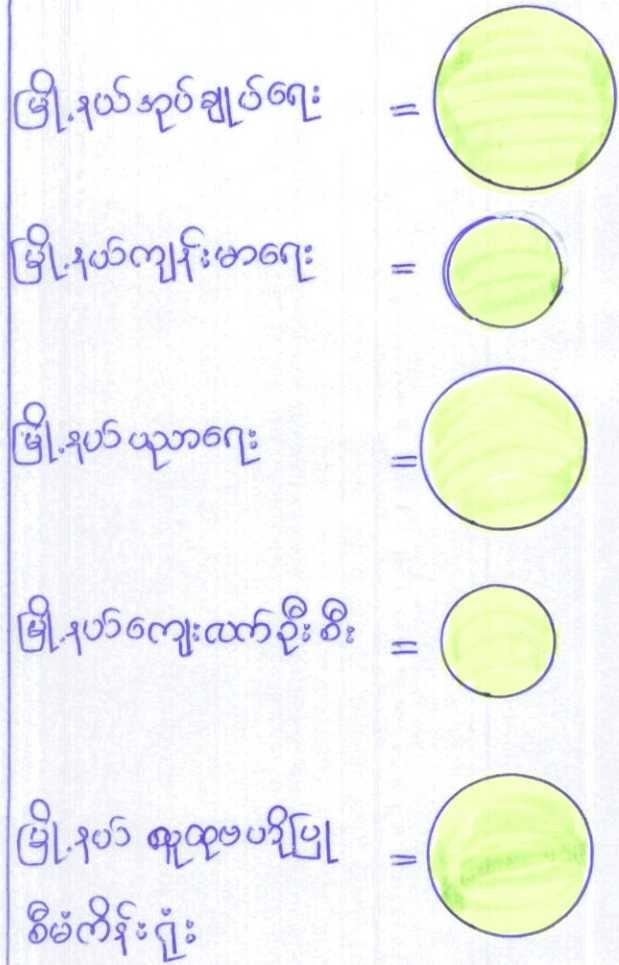 မြို့နယ်အုပ်ချုပ်ရေး =
မြို့နယ်ကျန်းမာရေး =
မြို့နယ်ပညာရေး =
မြို့နယ်ကျေးလက်ဦးစီး =
မြို့နယ် လူထုဗဟိုပြု =
စီမံကိန်းရုံး